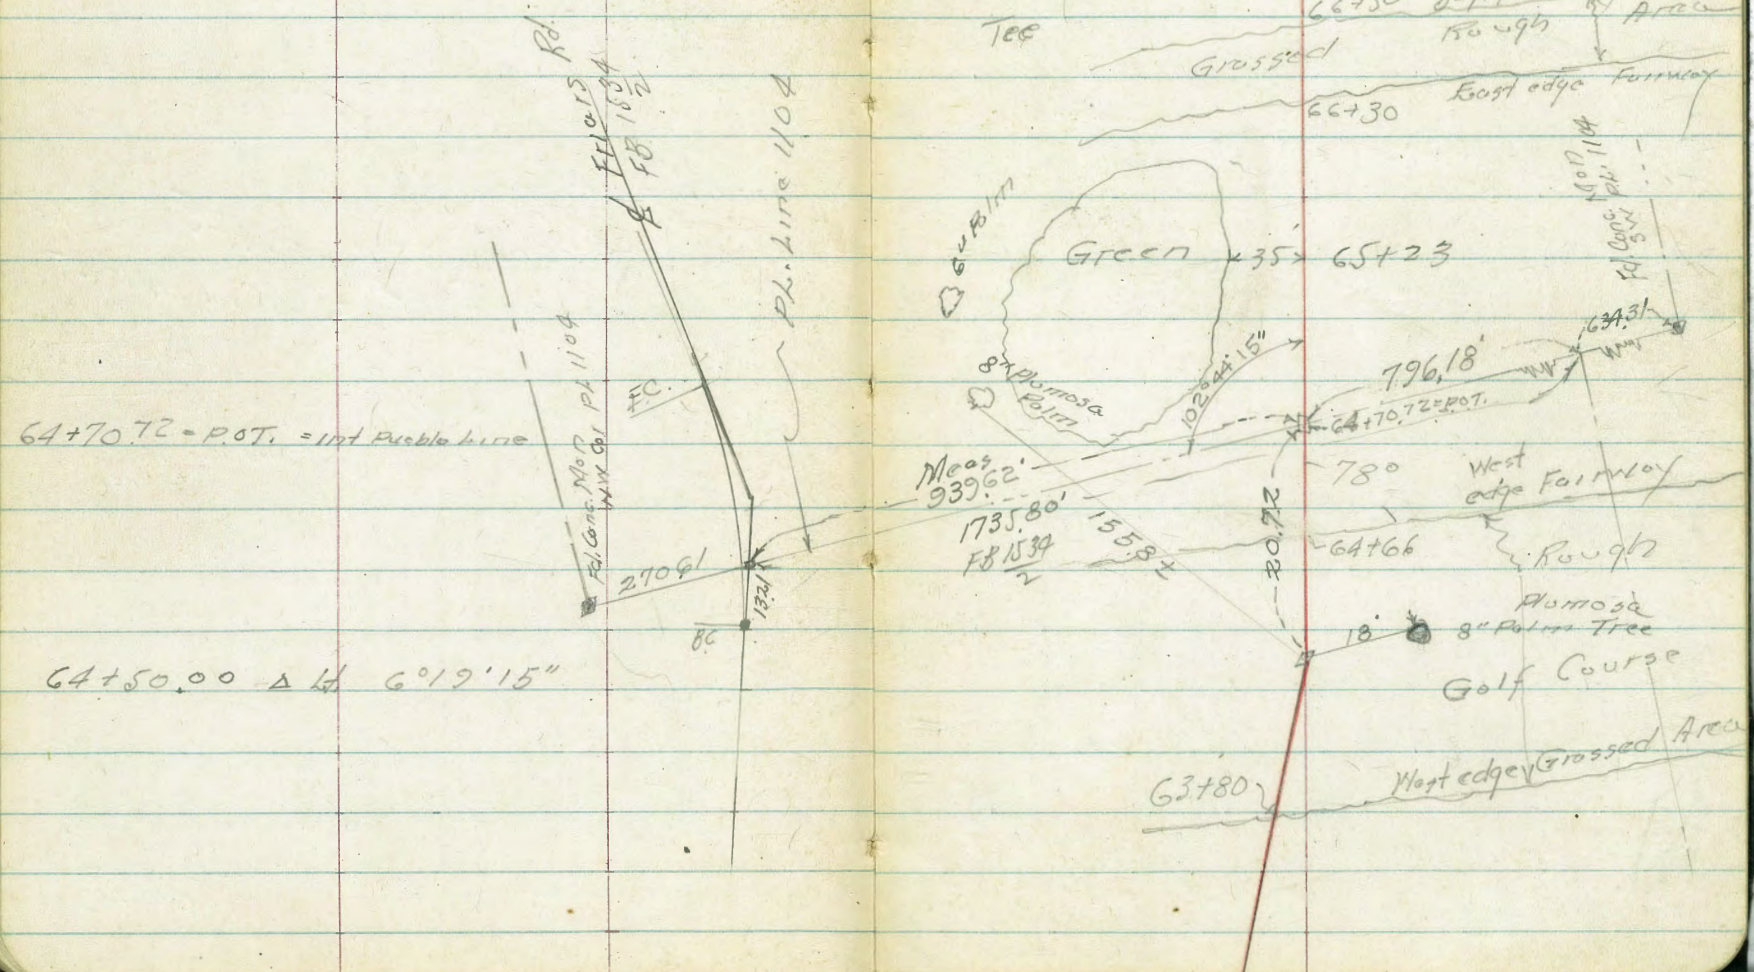 Rd.
Friars
FB 1534
2
PL. Line 1104
Fd. Conc. Mon
NW Cor PL 1104
E.C.
64+70.72 = P.O.T. = Int Pueblo Line
270.61
13.21
B.C.
64+50.00 Δ Lt 6°19'15"
66+50
Area
Tee
Rough
Grassed
East edge Fairway
66+30
Fd. Conc. Mon
PL. 1104
6" Palm
Green
35'
65+23
634.31
8" Plumosa
Palm
102°44'15"
796.18'
64+70.72=P.O.T.
Meas
939.62'
1735.80'
FB 1534
2
155.8
78°
West
edge Fairway
64+66
Rough
Plumosa
18'
8" Palm Tree
Golf Course
63+80
West edge Grassed Area